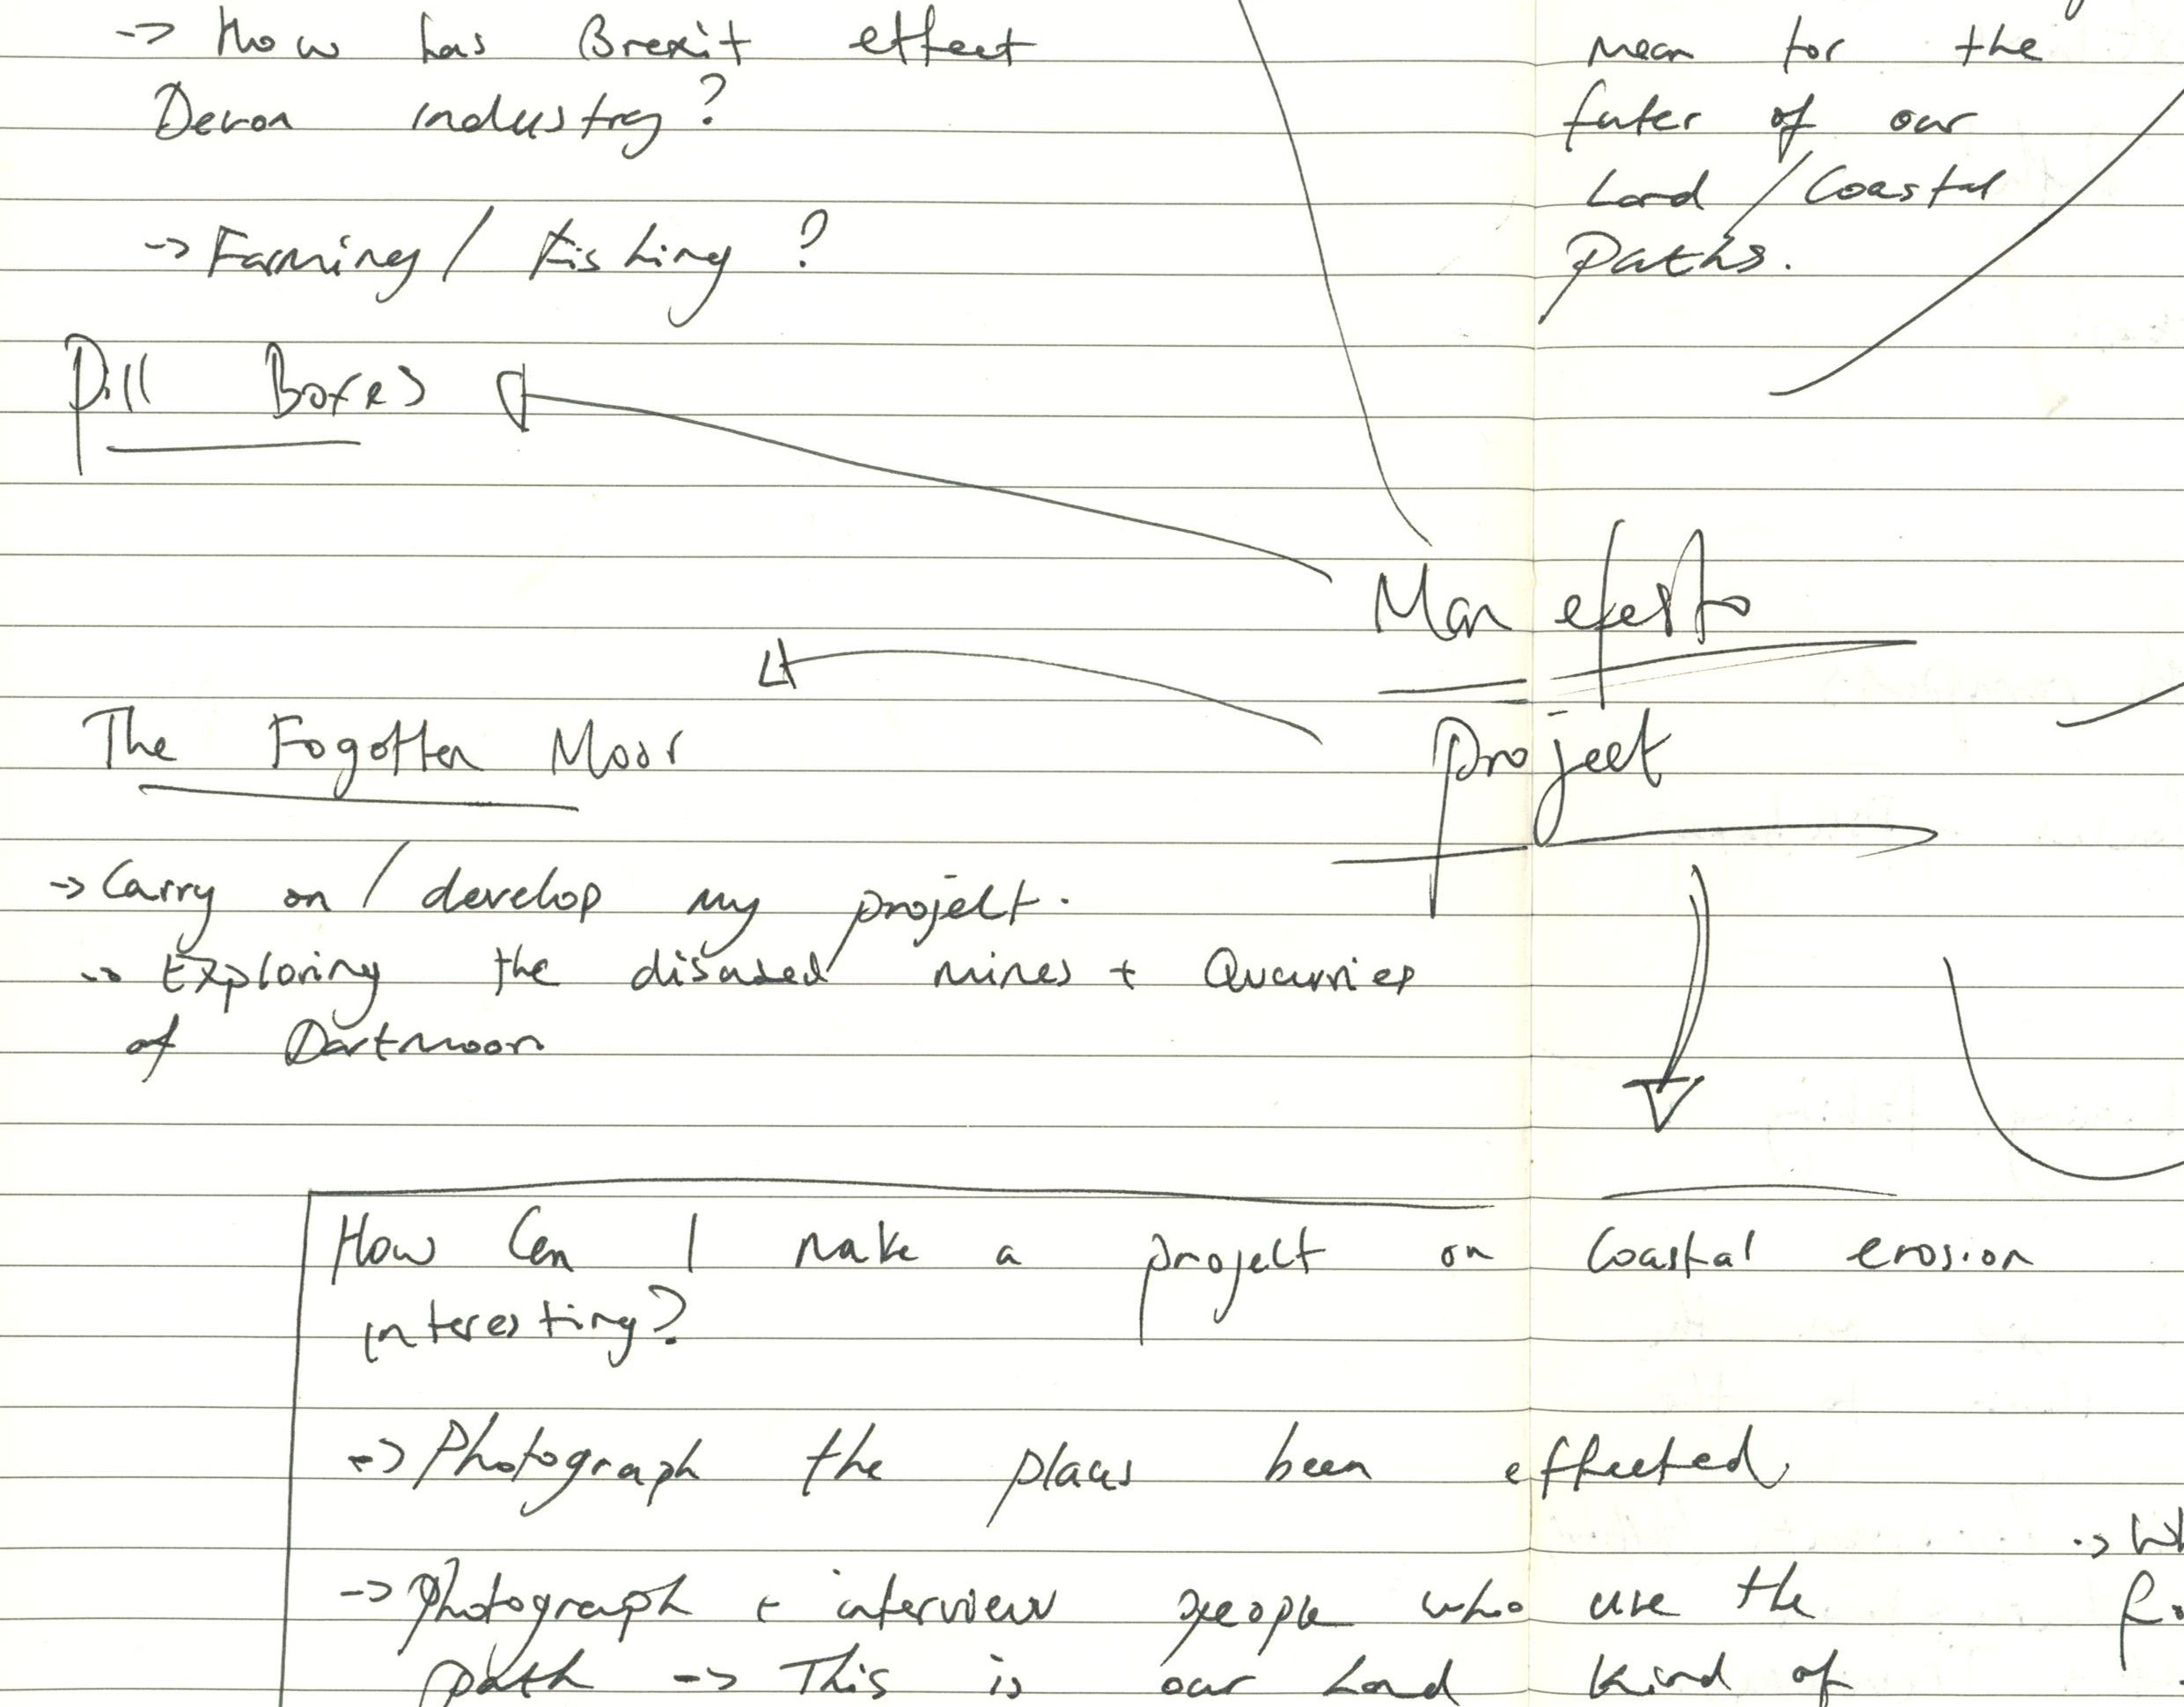 -> How has Brexit effect
Devon industry?
-> Farming / Fishing ?
Pill Boxes
mean for the
futer of our
Land / Coastal
Paths.
Manefesto
project
The Fogotten Moor
-> Carry on / develop my project.
-> Exploring the disused mines + Quarries
of Dartmoor
How Can I make a project on Coastal erosion
interesting?
-> Photograph the places been effected.
-> Photograph + interview people who use the
path -> This is our Land kind of